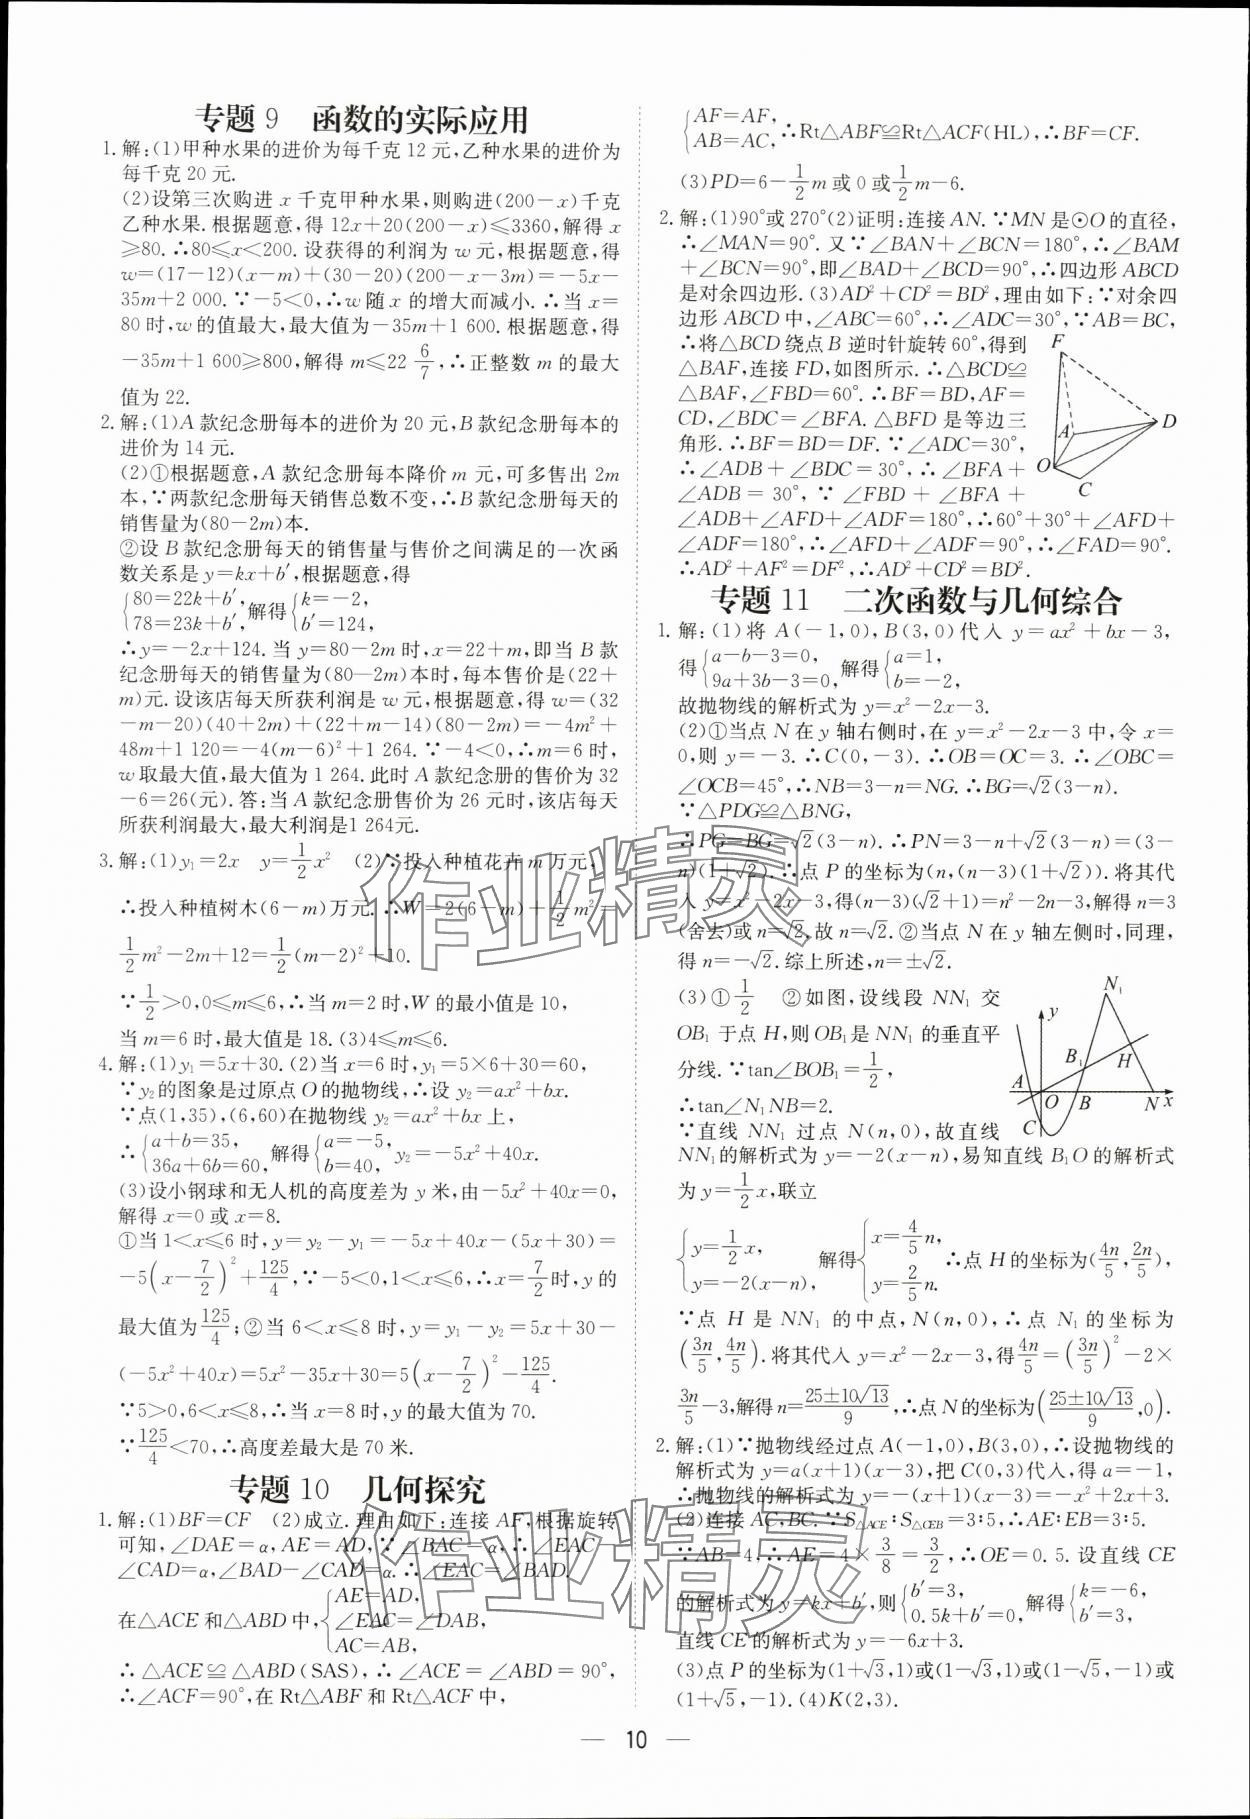 专题 9　函数的实际应用
1. 解:(1)甲种水果的进价为每千克 12 元,乙种水果的进价为
每千克 20 元.
(2)设第三次购进 x 千克甲种水果,则购进(200－x)千克
乙种水果.根据题意,得 12x＋20(200－x)≤3360,解得 x
≥80.∴80≤x＜200.设获得的利润为 w 元,根据题意,得
w＝(17－12)(x－m)＋(30－20)(200－x－3m)＝－5x－
35m＋2 000.∵－5＜0,∴w 随 x 的增大而减小.∴当 x＝
80 时,w 的值最大,最大值为－35m＋1 600.根据题意,得
－35m＋1 600≥800,解得 m≤22 6/7,∴正整数 m 的最大
值为 22.
2. 解:(1)A 款纪念册每本的进价为 20 元,B 款纪念册每本的
进价为 14 元.
(2)①根据题意,A 款纪念册每本降价 m 元,可多售出 2m
本,∵两款纪念册每天销售总数不变,∴B 款纪念册每天的
销售量为(80－2m)本.
②设 B 款纪念册每天的销售量与售价之间满足的一次函
数关系是 y＝kx＋b′,根据题意,得
{80＝22k＋b′, 78＝23k＋b′, 解得{k＝－2, b′＝124,
∴y＝－2x＋124.当 y＝80－2m 时,x＝22＋m,即当 B 款
纪念册每天的销售量为(80—2m)本时,每本售价是(22＋
m)元.设该店每天所获利润是 w 元,根据题意,得 w＝(32
－m－20)(40＋2m)＋(22＋m－14)(80－2m)＝－4m²＋
48m＋1 120＝－4(m－6)²＋1 264.∵－4＜0,∴m＝6 时,
w 取最大值,最大值为 1 264.此时 A 款纪念册的售价为 32
－6＝26(元).答:当 A 款纪念册售价为 26 元时,该店每天
所获利润最大,最大利润是1 264元.
3. 解:(1)y₁＝2x　y＝1/2x²　(2)∵投入种植花卉 m 万元,
∴投入种植树木(6－m)万元.∴W＝2(6－m)＋1/2m²＝
1/2m²－2m＋12＝1/2(m－2)²＋10.
∵1/2＞0,0≤m≤6,∴当 m＝2 时,W 的最小值是 10,
当 m＝6 时,最大值是 18.(3)4≤m≤6.
4. 解:(1)y₁＝5x＋30.(2)当 x＝6 时,y₁＝5×6＋30＝60,
∵y₂的图象是过原点 O 的抛物线,∴设 y₂＝ax²＋bx.
∵点(1,35),(6,60)在抛物线 y₂＝ax²＋bx 上,
∴{a＋b＝35, 36a＋6b＝60, 解得{a＝－5, b＝40, y₂＝－5x²＋40x.
(3)设小钢球和无人机的高度差为 y 米,由－5x²＋40x＝0,
解得 x＝0 或 x＝8.
①当 1＜x≤6 时,y＝y₂－y₁＝－5x＋40x－(5x＋30)＝
－5(x－7/2)²＋125/4,∵－5＜0,1＜x≤6,∴x＝7/2时,y 的
最大值为125/4;②当 6＜x≤8 时,y＝y₁－y₂＝5x＋30－
(－5x²＋40x)＝5x²－35x＋30＝5(x－7/2)²－125/4.
∵5＞0,6＜x≤8,∴当 x＝8 时,y 的最大值为 70.
∵125/4＜70,∴高度差最大是 70 米.
专题 10　几何探究
1. 解:(1)BF＝CF　(2)成立.理由如下:连接 AF,根据旋转
可知,∠DAE＝α,AE＝AD,∵∠BAC＝α,∴∠EAC－
∠CAD＝α,∠BAD－∠CAD＝α.∴∠EAC＝∠BAD.
在△ACE 和△ABD 中,{AE＝AD, ∠EAC＝∠DAB, AC＝AB,
∴△ACE≌△ABD(SAS),∴∠ACE＝∠ABD＝90°,
∴∠ACF＝90°,在 Rt△ABF 和 Rt△ACF 中,
{AF＝AF, AB＝AC, ∴Rt△ABF≌Rt△ACF(HL),∴BF＝CF.
(3)PD＝6－1/2m 或 0 或1/2m－6.
2. 解:(1)90°或 270°(2)证明:连接 AN.∵MN 是⊙O 的直径,
∴∠MAN＝90°.又∵∠BAN＋∠BCN＝180°,∴∠BAM
＋∠BCN＝90°,即∠BAD＋∠BCD＝90°,∴四边形 ABCD
是对余四边形.(3)AD²＋CD²＝BD²,理由如下:∵对余四
边形 ABCD 中,∠ABC＝60°,∴∠ADC＝30°,∵AB＝BC,
∴将△BCD 绕点 B 逆时针旋转 60°,得到
△BAF,连接 FD,如图所示.∴△BCD≌
△BAF,∠FBD＝60°.∴BF＝BD,AF＝
CD,∠BDC＝∠BFA.△BFD 是等边三
角形.∴BF＝BD＝DF.∵∠ADC＝30°,
∴∠ADB＋∠BDC＝30°.∴∠BFA＋
∠ADB＝30°,∵∠FBD＋∠BFA＋
∠ADB＋∠AFD＋∠ADF＝180°,∴60°＋30°＋∠AFD＋
∠ADF＝180°,∴∠AFD＋∠ADF＝90°,∴∠FAD＝90°.
∴AD²＋AF²＝DF²,∴AD²＋CD²＝BD².
F
A
D
O
C
专题 11　二次函数与几何综合
1. 解:(1)将 A(－1,0),B(3,0)代入 y＝ax²＋bx－3,
得{a－b－3＝0, 9a＋3b－3＝0, 解得{a＝1, b＝－2,
故抛物线的解析式为 y＝x²－2x－3.
(2)①当点 N 在 y 轴右侧时,在 y＝x²－2x－3 中,令 x＝
0,则 y＝－3.∴C(0,－3).∴OB＝OC＝3.∴∠OBC＝
∠OCB＝45°,∴NB＝3－n＝NG.∴BG＝√2(3－n).
∵△PDG≌△BNG,
∴PG＝BG＝√2(3－n).∴PN＝3－n＋√2(3－n)＝(3－
n)(1＋√2).∴点 P 的坐标为(n,(n－3)(1＋√2)).将其代
入 y＝x²－2x－3,得(n－3)(√2＋1)＝n²－2n－3,解得 n＝3
(舍去)或 n＝√2,故 n＝√2.②当点 N 在 y 轴左侧时,同理,
得 n＝－√2.综上所述,n＝±√2.
(3)①1/2　②如图,设线段 NN₁ 交
OB₁ 于点 H,则 OB₁是 NN₁ 的垂直平
分线.∵tan∠BOB₁＝1/2,
∴tan∠N₁NB＝2.
∵直线 NN₁ 过点 N(n,0),故直线
N₁
y
B₁
H
A
O B N x
C
NN₁的解析式为 y＝－2(x－n),易知直线 B₁O 的解析式
为 y＝1/2x,联立
{y＝1/2x, y＝－2(x－n), 解得{x＝4/5n, y＝2/5n. ∴点 H 的坐标为(4n/5,2n/5),
∵点 H 是 NN₁ 的中点,N(n,0),∴点 N₁ 的坐标为
(3n/5,4n/5).将其代入 y＝x²－2x－3,得4n/5＝(3n/5)²－2×
3n/5－3,解得 n＝25±10√13/9,∴点 N 的坐标为(25±10√13/9,0).
2. 解:(1)∵抛物线经过点 A(－1,0),B(3,0),∴设抛物线的
解析式为 y＝a(x＋1)(x－3),把 C(0,3)代入,得 a＝－1,
∴抛物线的解析式为 y＝－(x＋1)(x－3)＝－x²＋2x＋3.
(2)连接 AC,BC.∵S△ACE∶S△CEB＝3∶5,∴AE∶EB＝3∶5.
∵AB＝4,∴AE＝4×3/8＝3/2,∴OE＝0.5.设直线 CE
的解析式为 y＝kx＋b′,则{b′＝3, 0.5k＋b′＝0, 解得{k＝－6, b′＝3,
直线 CE 的解析式为 y＝－6x＋3.
(3)点 P 的坐标为(1＋√3,1)或(1－√3,1)或(1－√5,－1)或
(1＋√5,－1).(4)K(2,3).
— 10 —
作业精灵
作业精灵